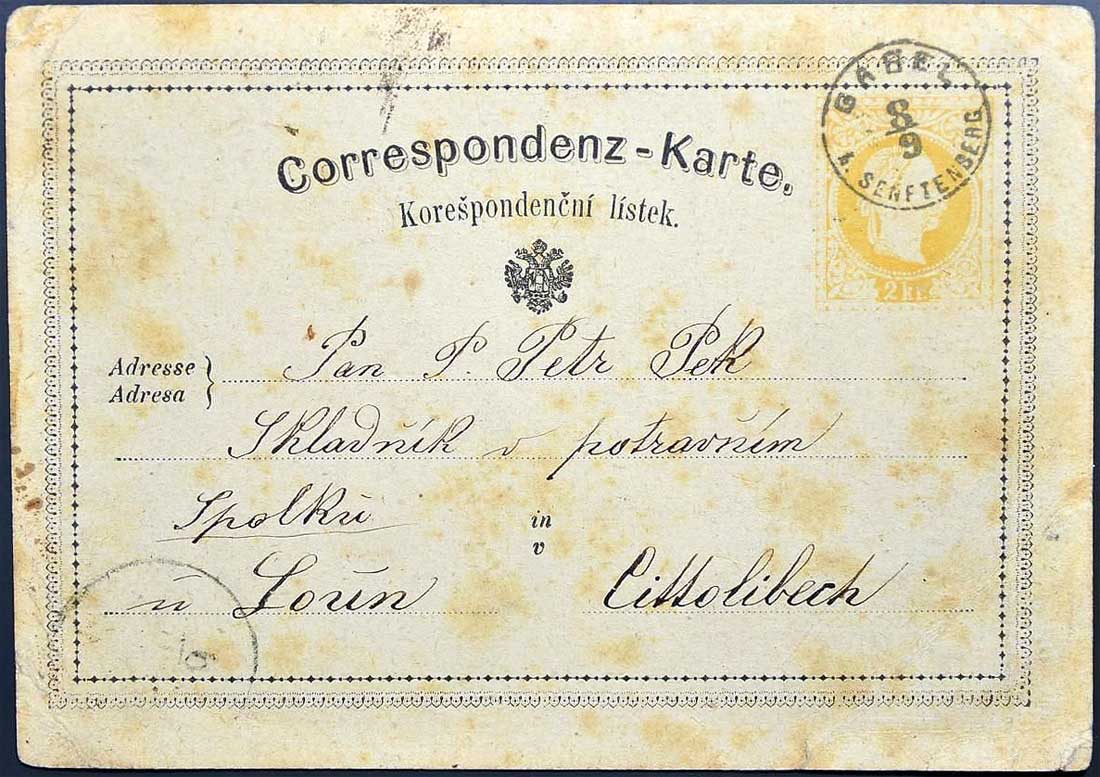 GABEL
8/9
b. SENFTENBERG
Correspondenz-Karte.
Korešpondenční lístek.
2 kr.
Adresse
Adresa
Pan P Petr Pek
Skladník v potravním
Spolku
in
v
u Loun Cittolibech